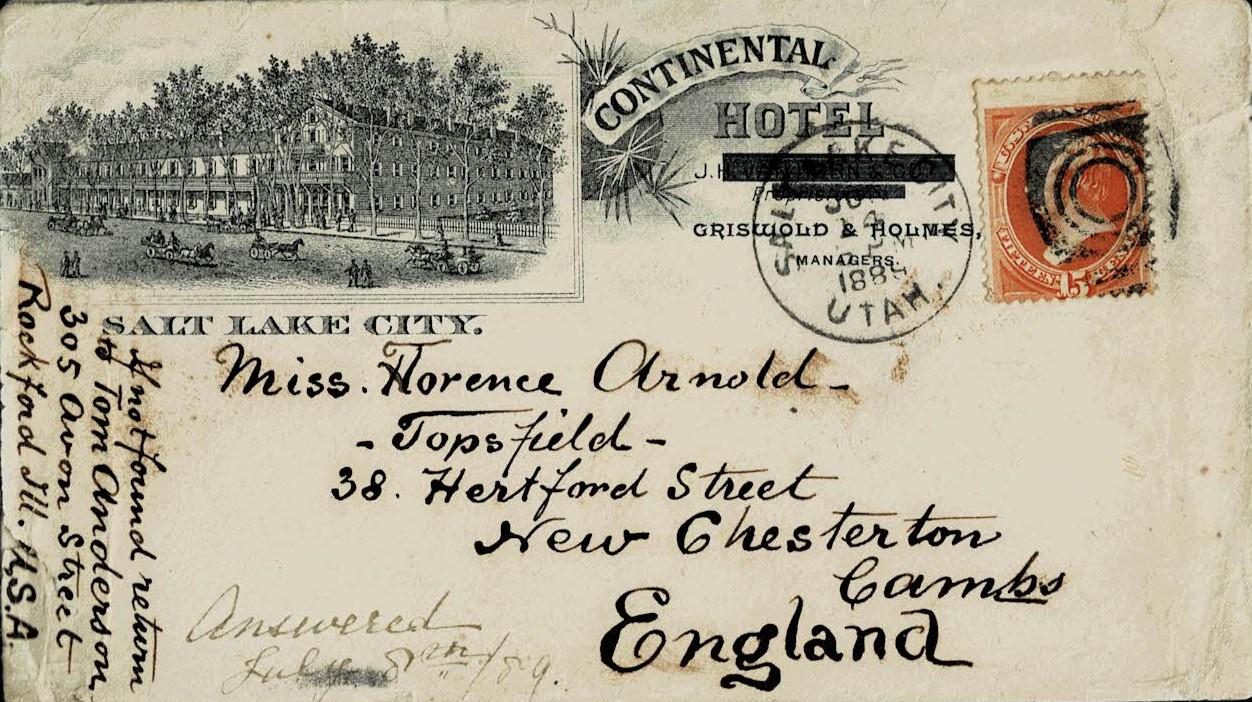 CONTINENTAL
HOTEL
GRISWOLD & HOLMES,
MANAGERS.
SALT LAKE CITY.
SALT LAKE CITY
14
1889
UTAH.
FIFTEEN 15 CENTS
Miss. Florence Arnold -
- Topsfield -
38. Hertford Street
New Chesterton
Cambs
England
If not found return
to Tom Anderson
305 Avon Street
Rockford Ill. U.S.A.
Answered
July 8th/89.